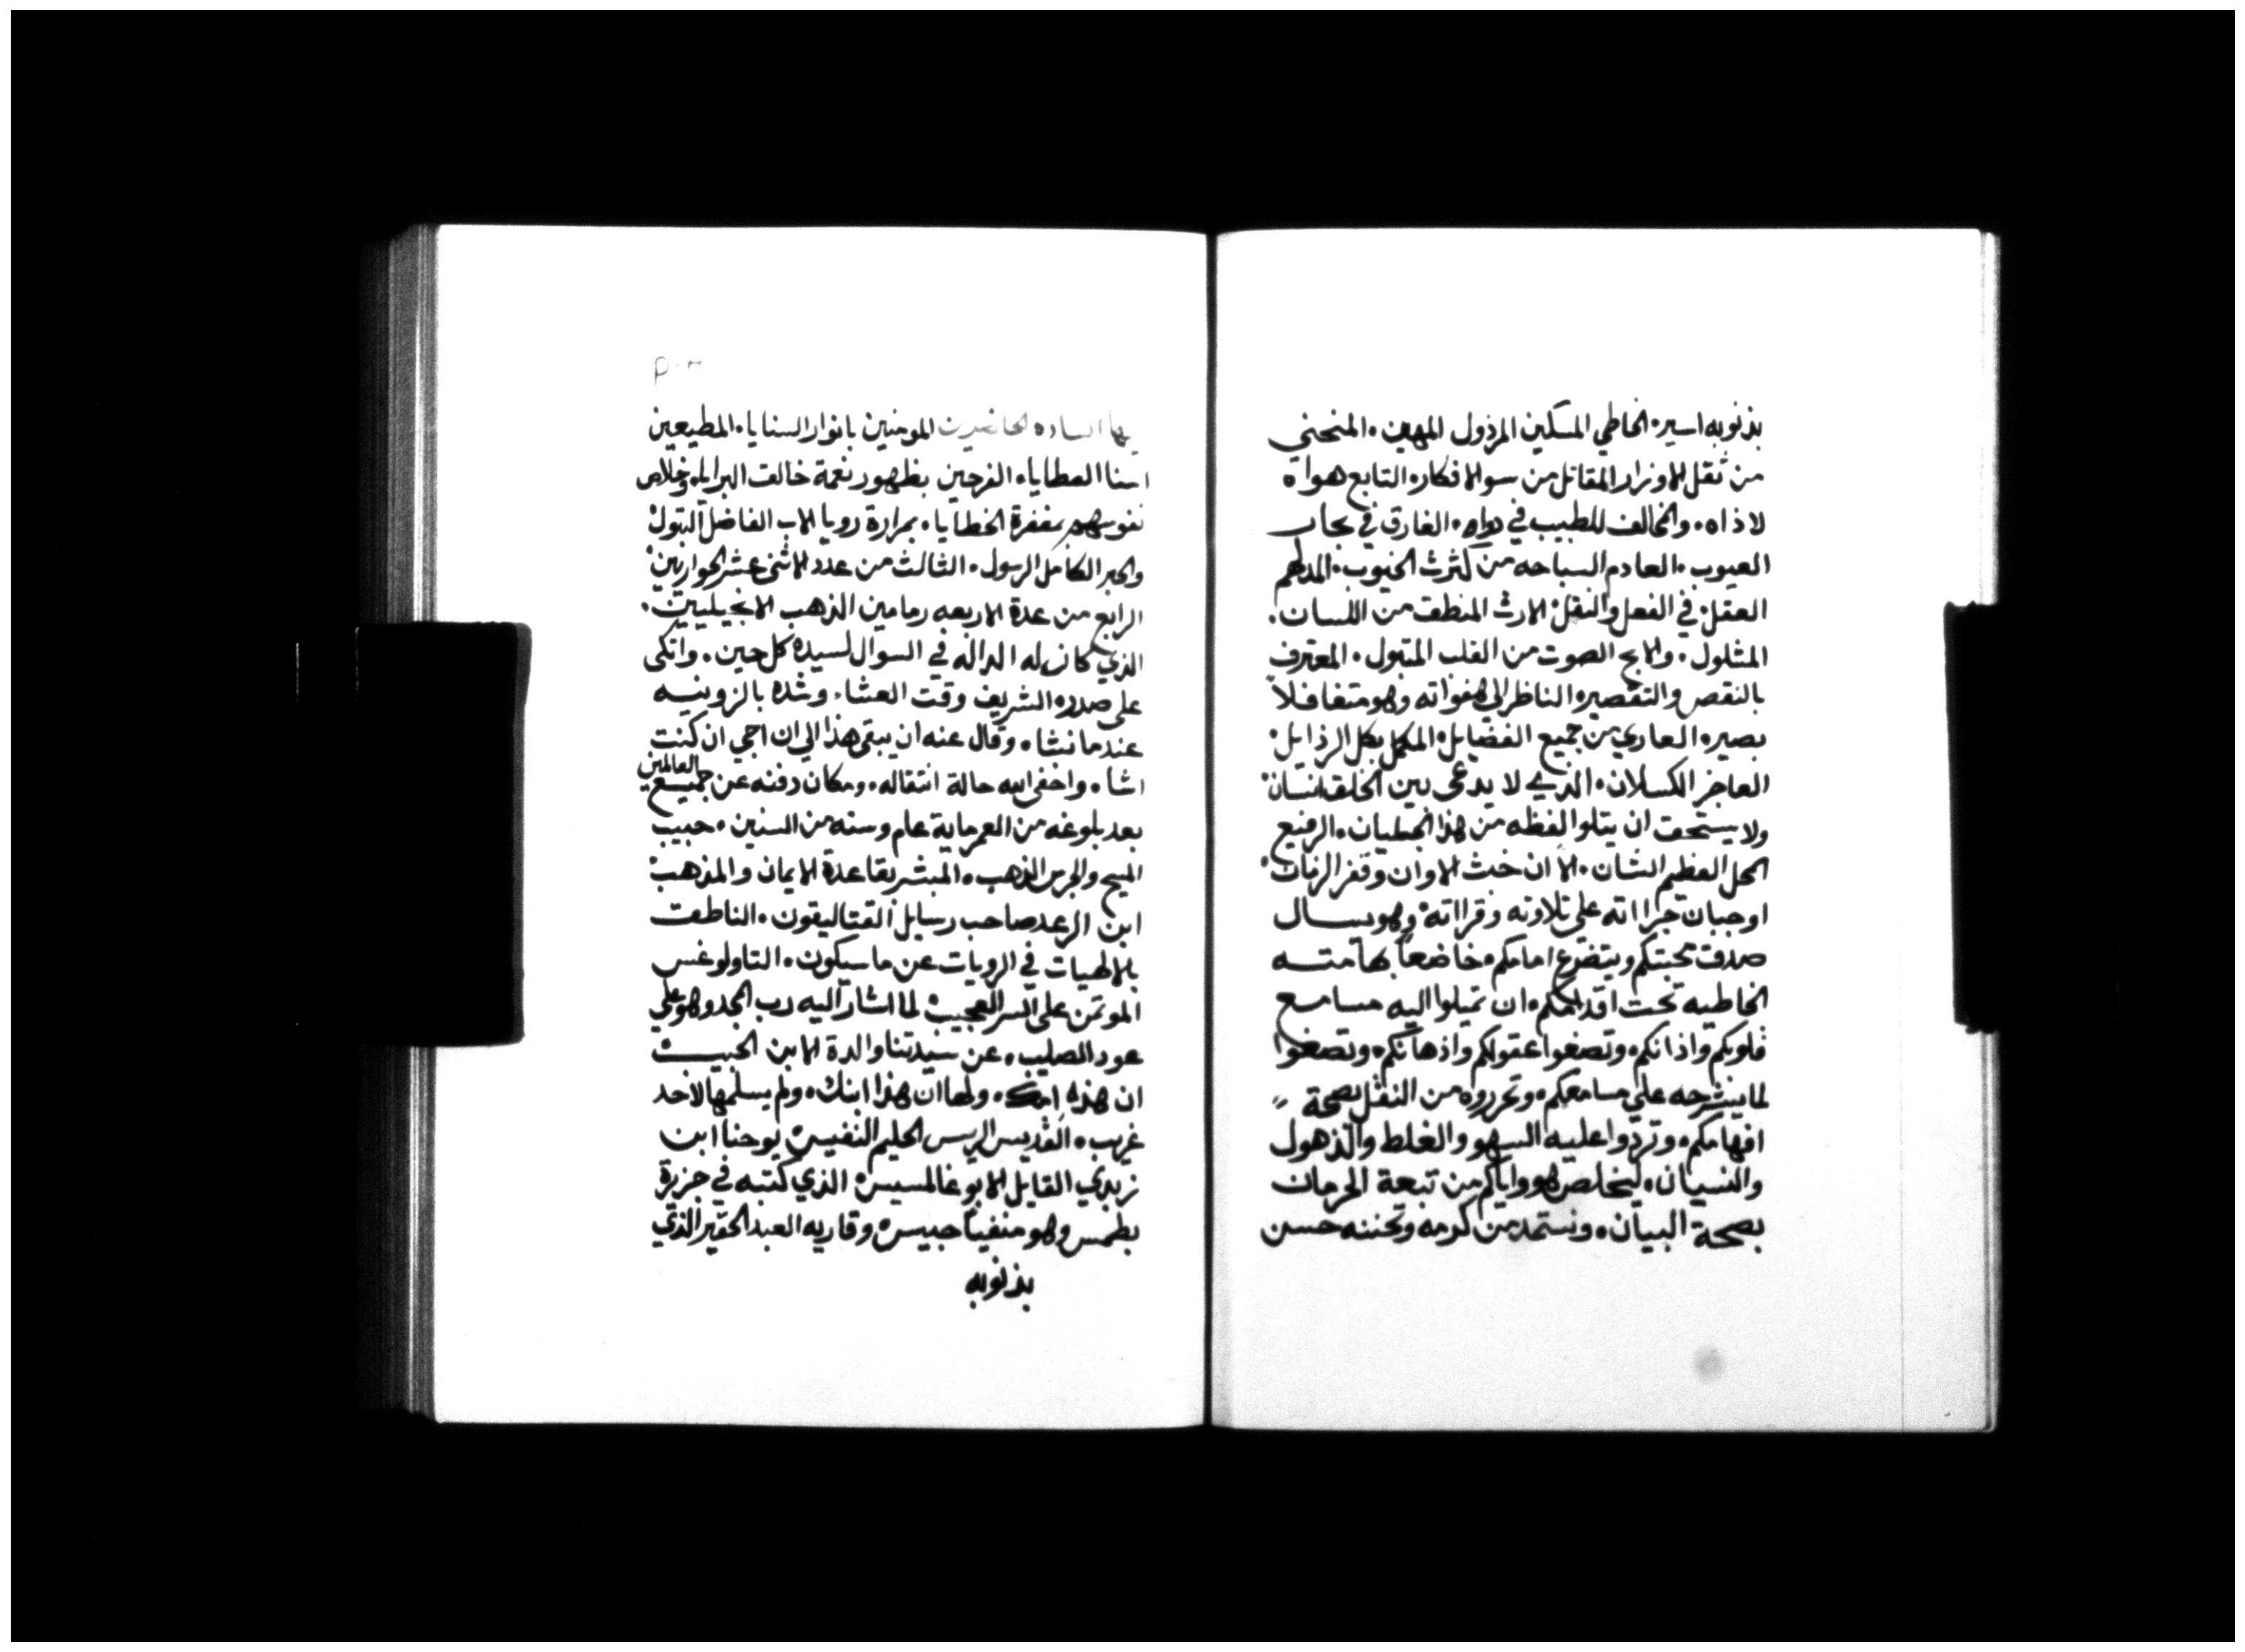 المومنين بانوار السنايا، المطيعين
اسنا العطايا، الفرحين بظهور نعمة خالق البرايا، وخلاص
نفوسهم بمغفرة الخطايا، بمرارة رويا الاب الفاضل البتول
والحبر الكامل الرسول، الثالث من عدد الاثنى عشر الحواريين
الرابع من عدة الاربعه رمامين الذهب الانجيليين.
الذي كان له الداله في السوال لسيده كل حين. واتكى
على صدره الشريف وقت العشا، وشده بالزونيه
عندما نشا، وقال عنه ان يبقى هذا الى ان اجي ان كنت
اشا، واخفى الله حالة انتقاله، ومكان دفنه عن جميع العالمين
بعد بلوغه من العمر ماية عام وسته من السنين، حبيب
المسيح والجرس الذهب، المبشر بقاعدة الايمان والمذهب
ابن الرعد صاحب رسايل القتاليقون، الناطق
بالالهيات في الرويات عن ما سيكون، التاولوغس
الموتمن على السر العجيب لما اشار اليه رب المجد وهو على
عود الصليب، عن سيدتنا والدة الابن الحبيب
ان هذه امك، ولها ان هذا ابنك، ولم يسلمها لاحد
غريب، القديس الريس الحليم النفيس، يوحنا ابن
زبدي القايل الابوغالمسيس، الذي كتبه في جزرة
بطمس وهو منفياً حبيس، وقاريه العبد الحقير الذي
بذنوبه
بذنوبه اسير، الخاطي المسكين المرذول المهين، المنحني
من ثقل الاوزار المقاتل من سو الافكار، التابع هواه
لاذاه، والمخالف للطبيب في دواه، الغارق في بحار
العيوب، العادم السباحه من كثرت الخبوب، المدلهم
العقل في الفعل والنقل، الارث المنطق من اللسان.
المشلول، والابح الصوت من القلب المتبول، المعترف
بالنقص والتقصير، الناظر الى هفواته وهو متغافلاً
بصير، العاري من جميع الفضايل، المكمل بكل الرذايل،
العاجز الكسلان، الذي لا يدعى بين الخلق انسان
ولا يستحق ان يتلوا لفظه من هذا الجليان، الرفيع
المحل العظيم الشان، الا ان خبث الاوان وقفر الزمان
اوجبان جرااته على تلاوته وقرااته، وهو يسال
صدق محبتكم ويتضرع امامكم، خاضعاً بهامته
الخاطيه تحت اقدامكم، ان تميلوا اليه مسامع
قلوبكم واذانكم، وتصغوا عقولكم واذهانكم، وتصغوا
لما يشرحه على مسامعكم، وتحرروه من النقل بصحة
افهامكم، وتردوا عليه السهو والغلط والذهول
والنسيان، ليخلص هو واياكم من تبعة الحرمان
بصحة البيان، ونستمد من كرمه وتحننه حسن